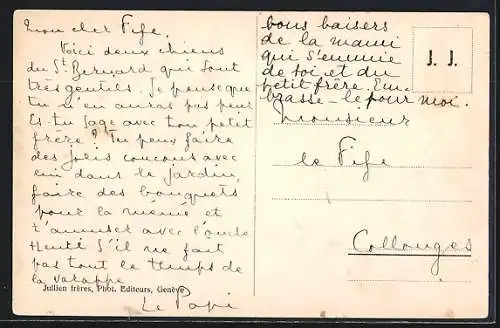 Mon cher Fife.
Voici deux chiens
du St Bernard qui sont
très gentils. Je pense que
tu n'en auras pas peur
Es tu sage avec ton petit
frère? Tu peux faire
des jolis coucous avec
lui dans le jardin,
faire des bouquets
pour la mémé et
t'amuser avec l'oncle
Henti s'il ne fait
pas tout le temps de
la varappe
Le Papi
Jullien frères, Phot. Editeurs, Genève
bons baisers
de la mami
qui s'ennuie
de toi et du
petit frère. Em-
brasse-le pour moi.
J. J.
Monsieur
le Fife
Collonges